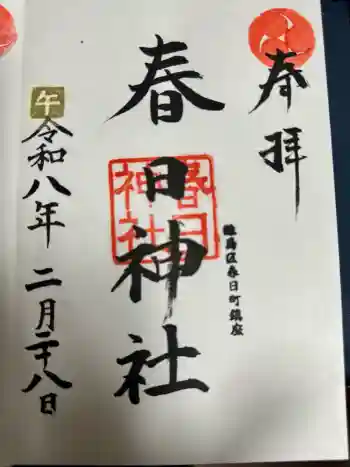 奉拝
練馬区春日町鎮座
春日神社
春日神社
午
令和八年 二月二十八日